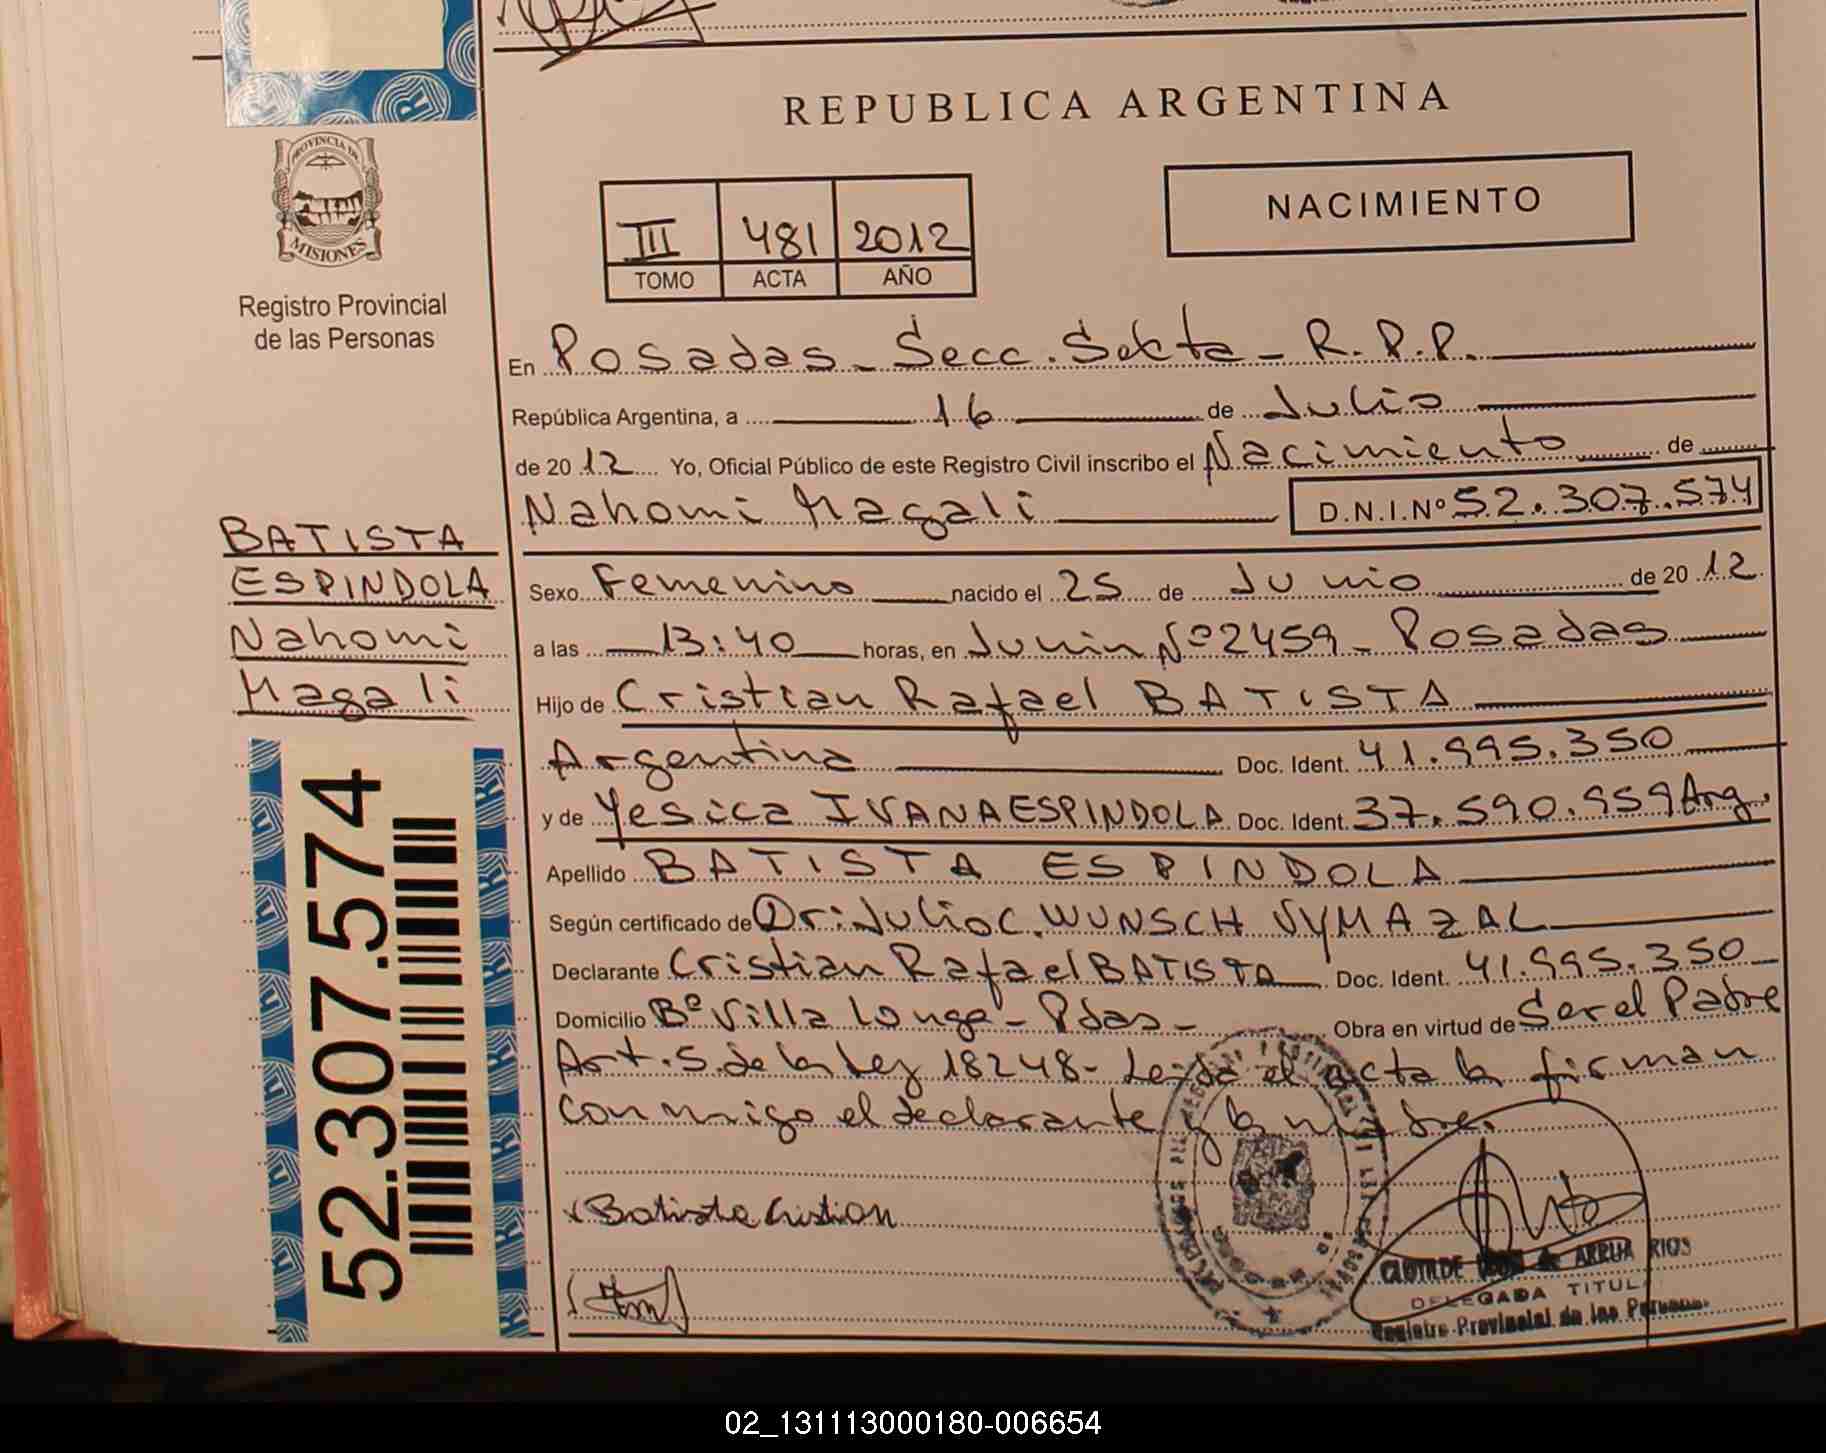 REPUBLICA ARGENTINA
PROVINCIA DE
MISIONES
Registro Provincial
de las Personas
III 481 2012
TOMO ACTA AÑO
NACIMIENTO
En Posadas - Secc. Sexta - R.P.P.
República Argentina, a 16 de Julio
de 2012 Yo, Oficial Público de este Registro Civil inscribo el Nacimiento de
Nahomi Magali D.N.I.Nº 52.307.574
BATISTA
ESPINDOLA
Nahomi
Magali
Sexo Femenino nacido el 25 de Junio de 2012
a las 13:40 horas, en Junin Nº 2459 - Posadas
Hijo de Cristian Rafael BATISTA
Argentina Doc. Ident. 41.995.350
y de Yesica IVANA ESPINDOLA Doc. Ident. 37.590.959 Arg.
Apellido BATISTA ESPINDOLA
Según certificado de Dr: Julio C. WUNSCH VYMAZAL
Declarante Cristian Rafael BATISTA Doc. Ident. 41.995.350
Domicilio Bº Villa Longa - Pdas - Obra en virtud de Ser el Padre
Art. 5 de la Ley 18248 - Leida el acta la firman
conmigo el declarante y la madre.
52.307.574
Batista Cristian
CLOTILDE de ARRUA RIOS
DELEGADA TITUL
Registro Provincial de las Personas
02_131113000180-006654